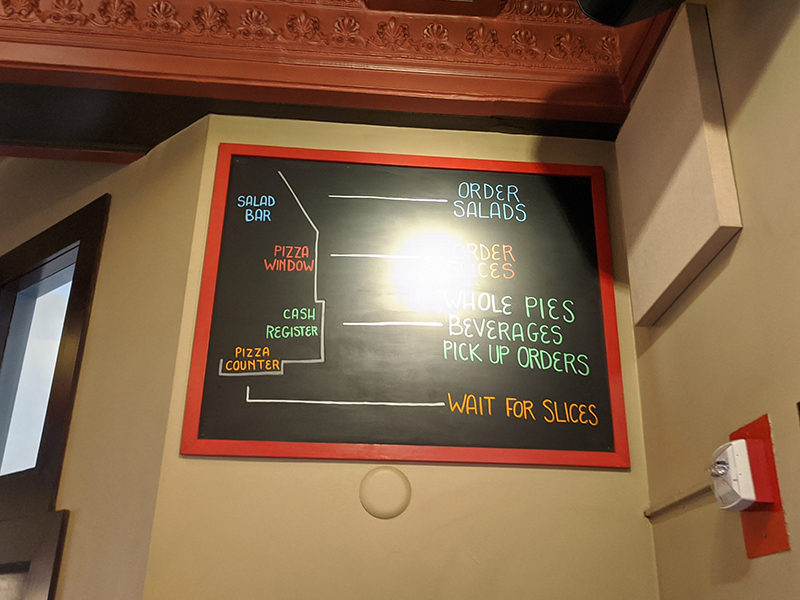 SALAD
BAR
ORDER
SALADS
PIZZA
WINDOW
ORDER
SLICES
CASH
REGISTER
WHOLE PIES
BEVERAGES
PICK UP ORDERS
PIZZA
COUNTER
WAIT FOR SLICES